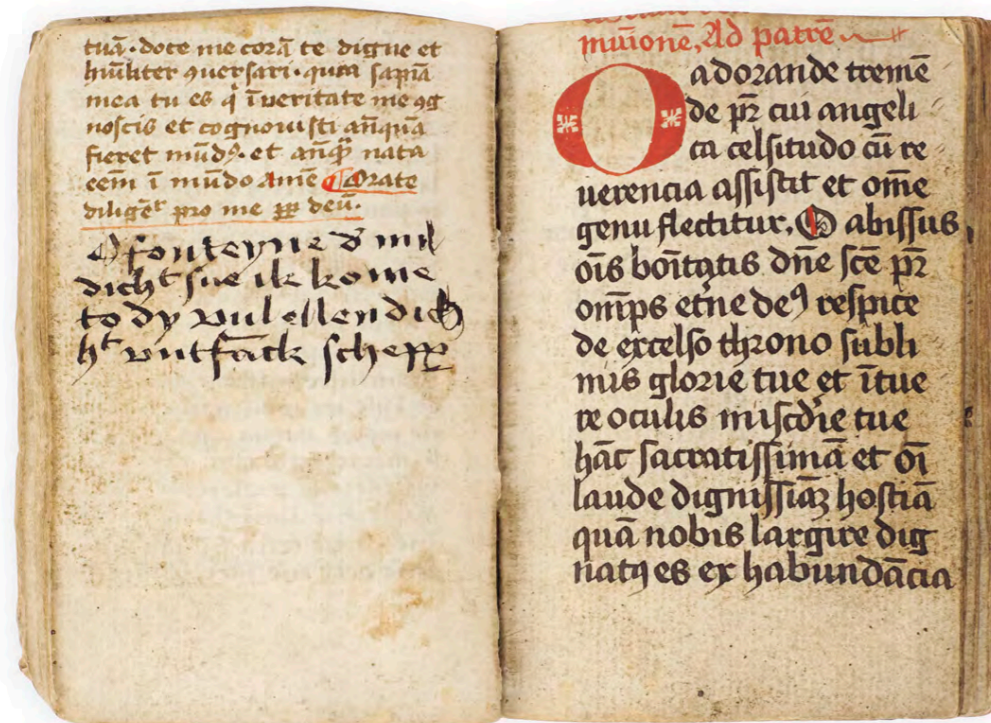 tuā. doce me corā te digne et
hūiliter ꝯuersari. quia sapīa
mea tu es q̄ ī veritate me ꝯg
noscis et cognouisti an̄quā
fieret mūdꝰ. et an̄qꝫ nata
eem̄ ī mūdo Amē Orate
diligēt pro me ꝓꝑ deū.
O fonteyne d' mil
dicht sue ik kome
to dy vul ellendich
ht vntfāck schepꝑ
muīonē, Ad patrē
O adorande tremē
de pr̄ cui angeli
ca celsitudo cū re
uerencia assistit et om̄e
genu flectitur. O abissus
ōīs boītatis dn̄e sc̄e pr̄
om̄ps et̄ne deꝰ respice
de excelso throno subli
mis glorie tue et ītue
re oculis mīscdīe tue
hāc sacratissimā et ōī
laude dignissīaꝫ hostiā
quā nobis largire dig
natꝰ es ex habundācia